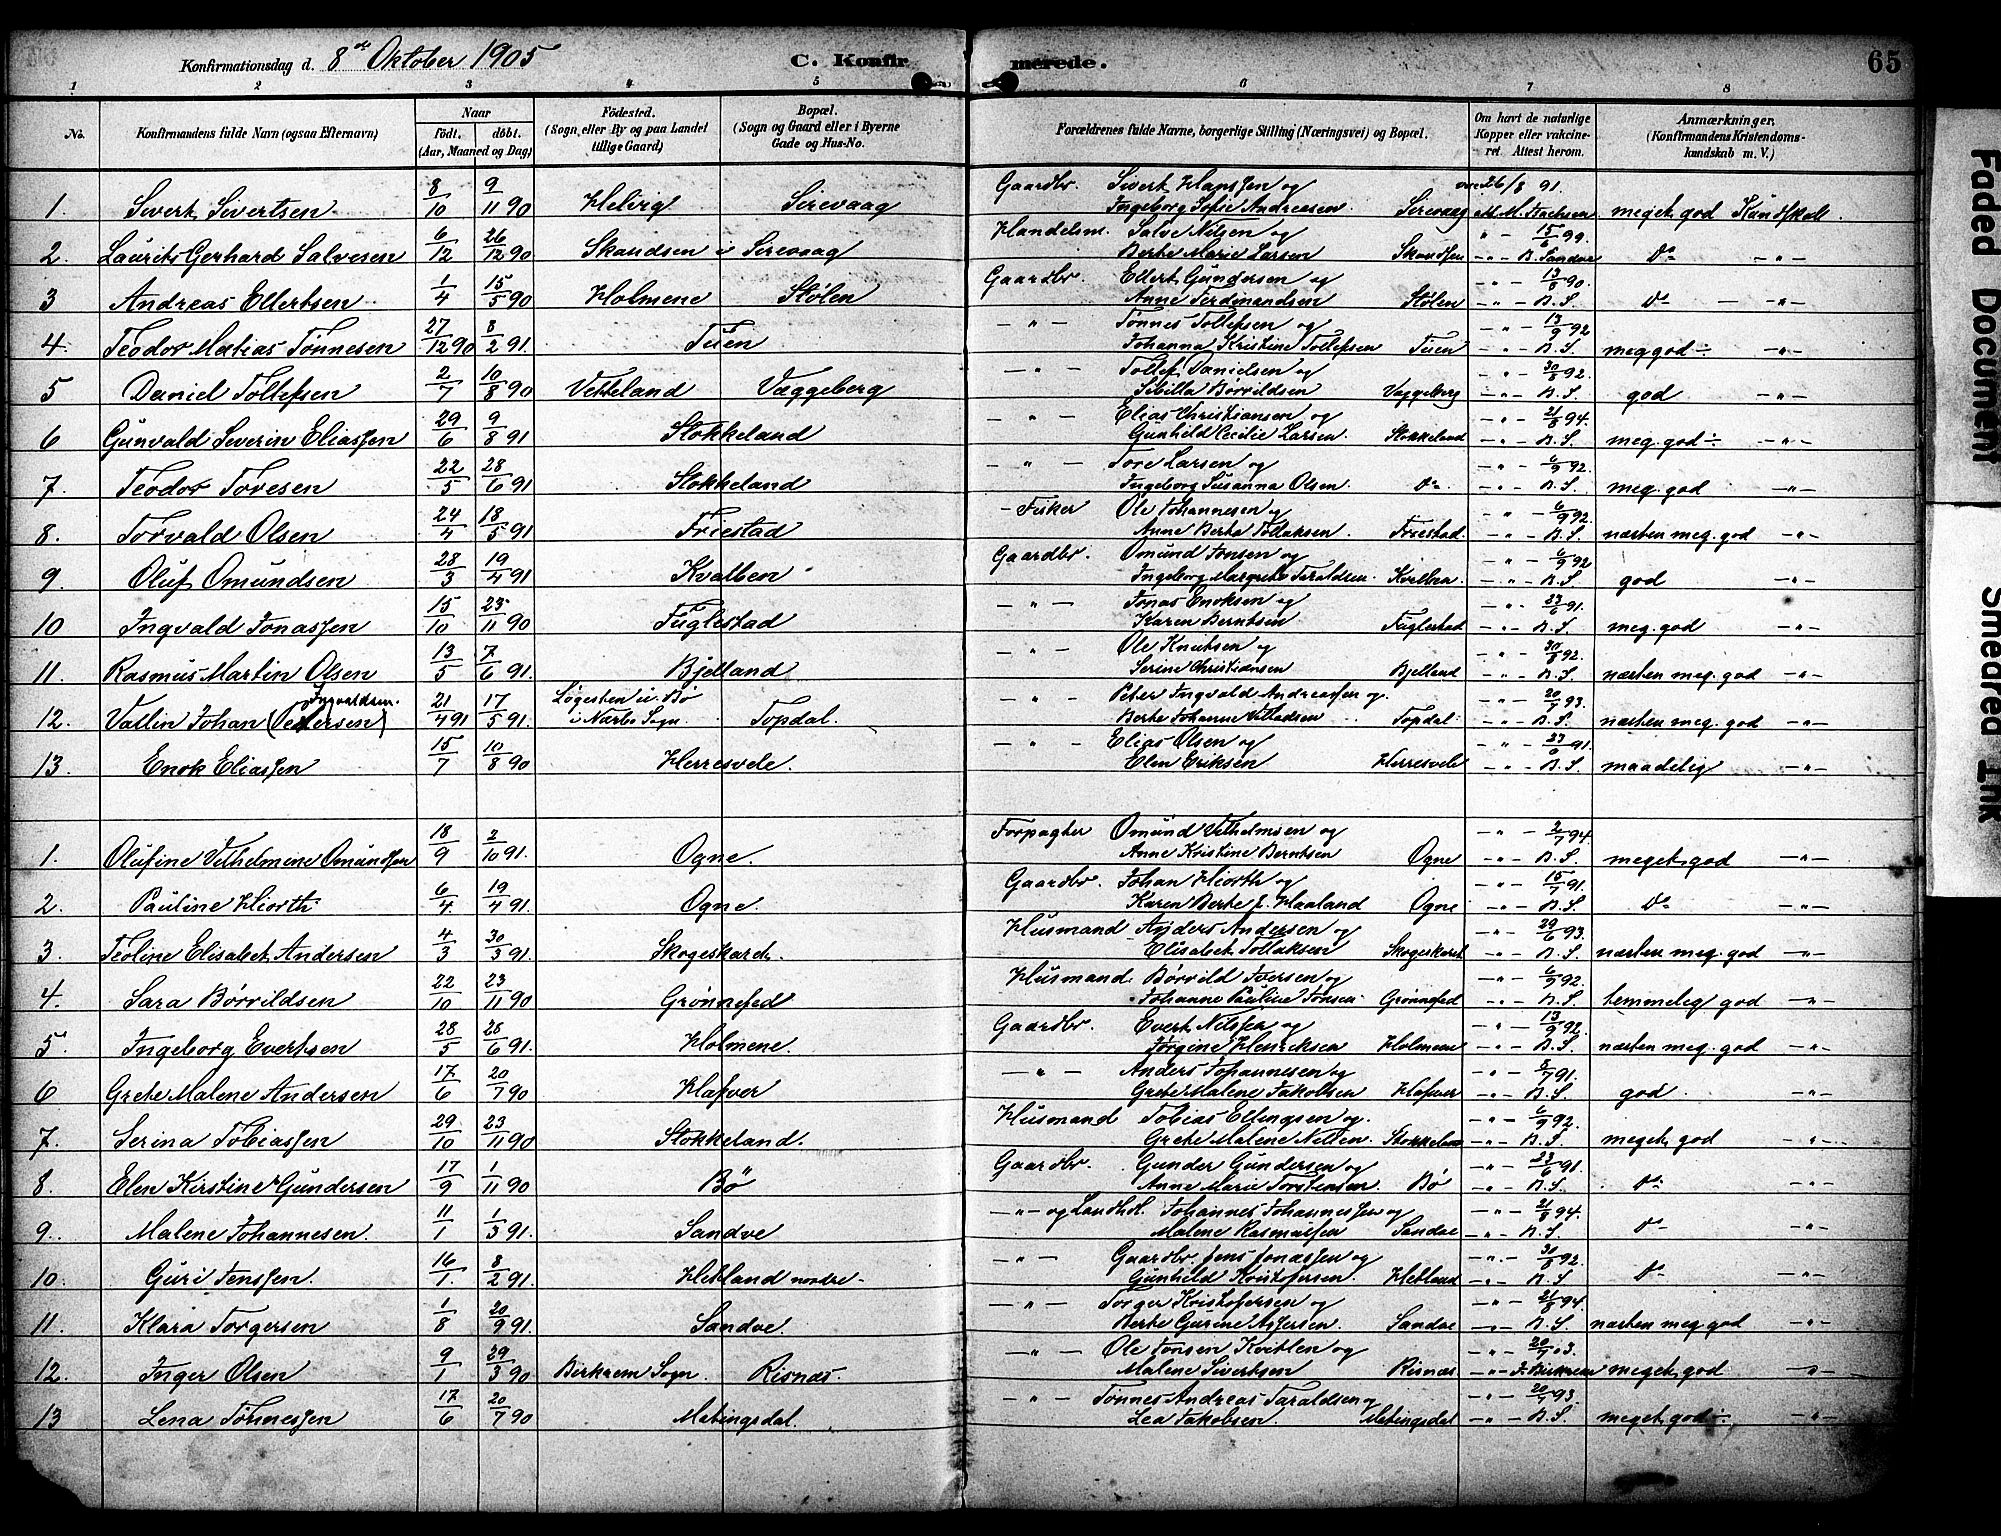 Konfirmationsdag d. 8de Oktober 1905 C. Konfirmerede. 65
1 2 3 4 5 6 7 8
No. Konfirmandens fulde Navn (ogsaa Efternavn) Naar født, døbt. (Aar, Maaned og Dag) Födested. (Sogn eller By og paa Landet tillige Gaard) Bopæl. (Sogn og Gaard eller i Byerne Gade og Hus-No. Forældrenes fulde Navne, borgerlige Stilling (Næringsvei) og Bopæl. Om havt de naturlige Kopper eller vakcineret Attest herom. Anmærkninger, (Konfirmandens Kristendomskundskab m. V.)
1. Sivert Sivertsen 8/10 9/11 90 Helvig Sirevaag Gaardbr. Sivert Hanssen og Ingeborg Sofie Andreasen Sirevaag 26/8 91. meget god Kundskab
2. Laurits Gerhard Salvesen 6/12 26/12 90 Skandsen i Sirevaag Handelsm. Salve Nilsen og Berte Marie Larsen Skandsen -"- 15/6 99. B. Sandve Do -"-
3 Andreas Ellertsen 1/4 15/5 90 Holmene Stølen Gaardbr. Ellert Gundersen og Anne Ferdinandsen Stølen -"- 13/9 90. B. S. Do -"-
4. Teodor Matias Tønnesen 27/12 90 8/2 91. Tuen -"- Tønnes Tollefsen og Johanna Kristine Tollefsen Tuen -"- 13/9 92. B. S. meg god ÷ -"-
5 Daniel Tollefsen 2/7 10/8 90 Vetteland Vaggeberg -"- Tollef Danielsen og Sibilla Børrildsen Vaggeberg -"- 30/8 92. B. S. god -"-
6 Gunvald Severin Eliassen 29/6 9/8 91 Stokkeland -"- Elias Christiansen og Gunhild Cecilie Larsen. Stokkeland -"- 21/8 94. B. S. meg. god ÷ -"-
7. Teodor Toresen 22/5 28/6 91 Stokkeland -"- Tore Larsen og Ingeborg Susanna Olsen. Do -"- 6/9 92. B. S. meg. god -"-
8. Torvald Olsen 24/4 18/5 91 Friestad - Fisker Ole Johannesen og Anne Berta Tollaksen Friestad. -"- 6/9 92. B. S. næsten meg. god -"-
9 Oluf Omundsen 28/3 19/4 91 Kvalben Gaardbr. Omund Jonsen og Ingeborg Margrete Taraldsen. Kvalben. -"- 6/9 92 B. S. god -"-
10 Ingvald Jonassen 15/10 23/11 90 Fuglestad -"- Jonas Enoksen og Karen Berntsen Fuglestad -"- 23/6 91. B. S. meg. god -"-
11. Rasmus Martin Olsen 13/5 7/6 91. Bjelland -"- Ole Knutsen og Serine Christiansen Bjelland -"- 30/8 92. B. S. næsten meg. god -"-
12. Vallin Johan (Pedersen) Ingvaldsen. 21/4 91 17/5 91. Løgesten u. Bø i Nærbø Sogn. Topdal. -"- Peter Ingvald Andreassen og Berte Johanne Villadsen Topdal. -"- 20/7 93. B. S. næsten meg. god -"-
13. Enok Eliassen 15/7 10/8 90 Herresvele. -"- Elias Olsen og Elen Eriksen Herresvele -"- 23/6 91. B. S. maadelig -"-
1. Olufine Vilhelmine Omundsen 18/9 2/10 91. Ogne. Forpagter Omund Vilhelmsen og Anne Kristine Berntsen Ogne -"- 2/7 94. B. S. meget god -"-
2. Pauline Hiorth 6/4. 19/4 91. Ogne. Gaardbr. Johan Hiorth og Karen Berte f. Haaland Ogne -"- 15/7 91. B. S. Do -"-
3. Teoline Elisabet Andersen 4/3 30/3 91. Skogeskard. Husmand Anders Andersen og Elisabet Tollaksen Skogeskaret -"- 29/6 93. B. S. næsten meg. god -"-
4. Sara Børrildsen 22/10 23/11 90 Grønnefed Husmand Børrild Iversen og Johanne Pauline Jonsen. Grønnefed -"- 6/9 92. B. S. temmelig god -"-
5. Ingeborg Evertsen 28/5 28/6 91. Holmene. Gaardbr. Evert Nilssen og Jorgine Henriksen Holmene -"- 13/9 92. B. S. næsten meg. god -"-
6 Grete Malene Andersen 17/6 20/7 90 Hafver -"- Anders Johannesen og Grete Malene Jakobsen Hafver -"- 8/7 91. B. S. god. -"-
7. Serina Tobiassen 29/10 23/11 90 Stokkeland. Husmand Tobias Ellingsen og. Grete Malene Nilsen. Stokkeland -"- 6/9 92. B. S. meget god -"-
8. Elen Kirstine Gundersen 17/9 1/11 90 Bø Gaardbr. Gunder Gundersen og Anne Marie Torstensen. Bø -"- 23/6 91. B. S. Do -"-
9. Malene Johannesen. 11/1 1/3 91. Sandve -"- og Landhdl. Johannes Johannessen og Malene Rasmussen Sandve -"- 21/8 94. B. S. Do -"-
10. Guri Jenssen. 16/1. 8/2 91. Hetland nordre. -"- Gaardbr. Jens Jonassen og Gunhild Kristofersen. Hetland -"- 30/8 92. B. S. Do -"-
11. Klara Torgersen 1/8 20/9 91. Sandve. -"- Torger Kristofersen og Berte Gurine Assersen. Sandve -"- 21/8 94. B. S. næsten meg god -"-
12. Inger Olsen 9/1 29/3 90 Birkrem Sogn Risnæs. -"- Ole Jonsen Kvitlen og Malene Sivertsen Risnæs -"- 20/7 03. J. Birkrem meget god -"-
13 Lena Tønnessen 17/6 20/7 90 Matingsdal. -"- Tønnes Andreas Taraldsen og Lea Jakobsen. Matingsdal -"- 20/7 93. B. S. meget god ÷ -"-
Faded Document
Smeared Ink